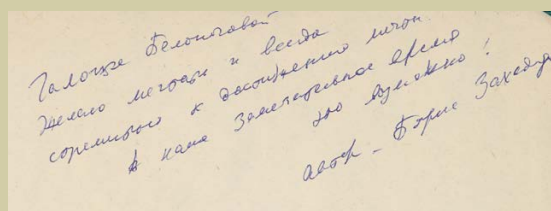 Галочке Белоноговой
Желаю мечтать и всегда
стремиться к достижению мечты.
В наше замечательное время
это возможно!
автор – Борис Заходер